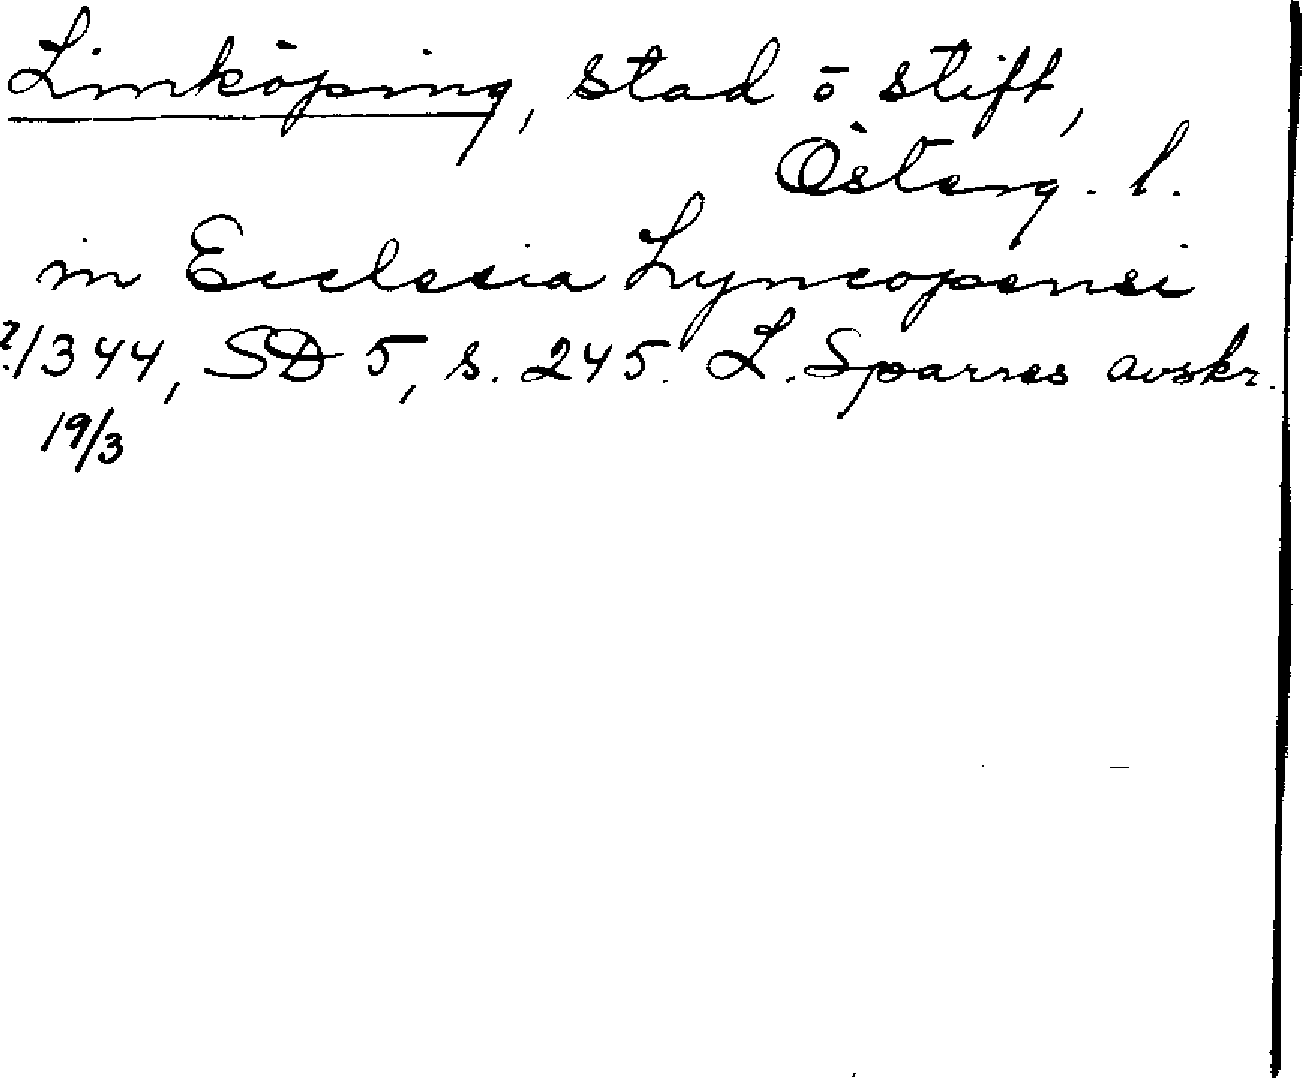 Linköping, stad o stift,
Österg. l.
in Ecclesia Lyncopensi
?1344, SD 5, s. 245. L. Sparres avskr.
19/3